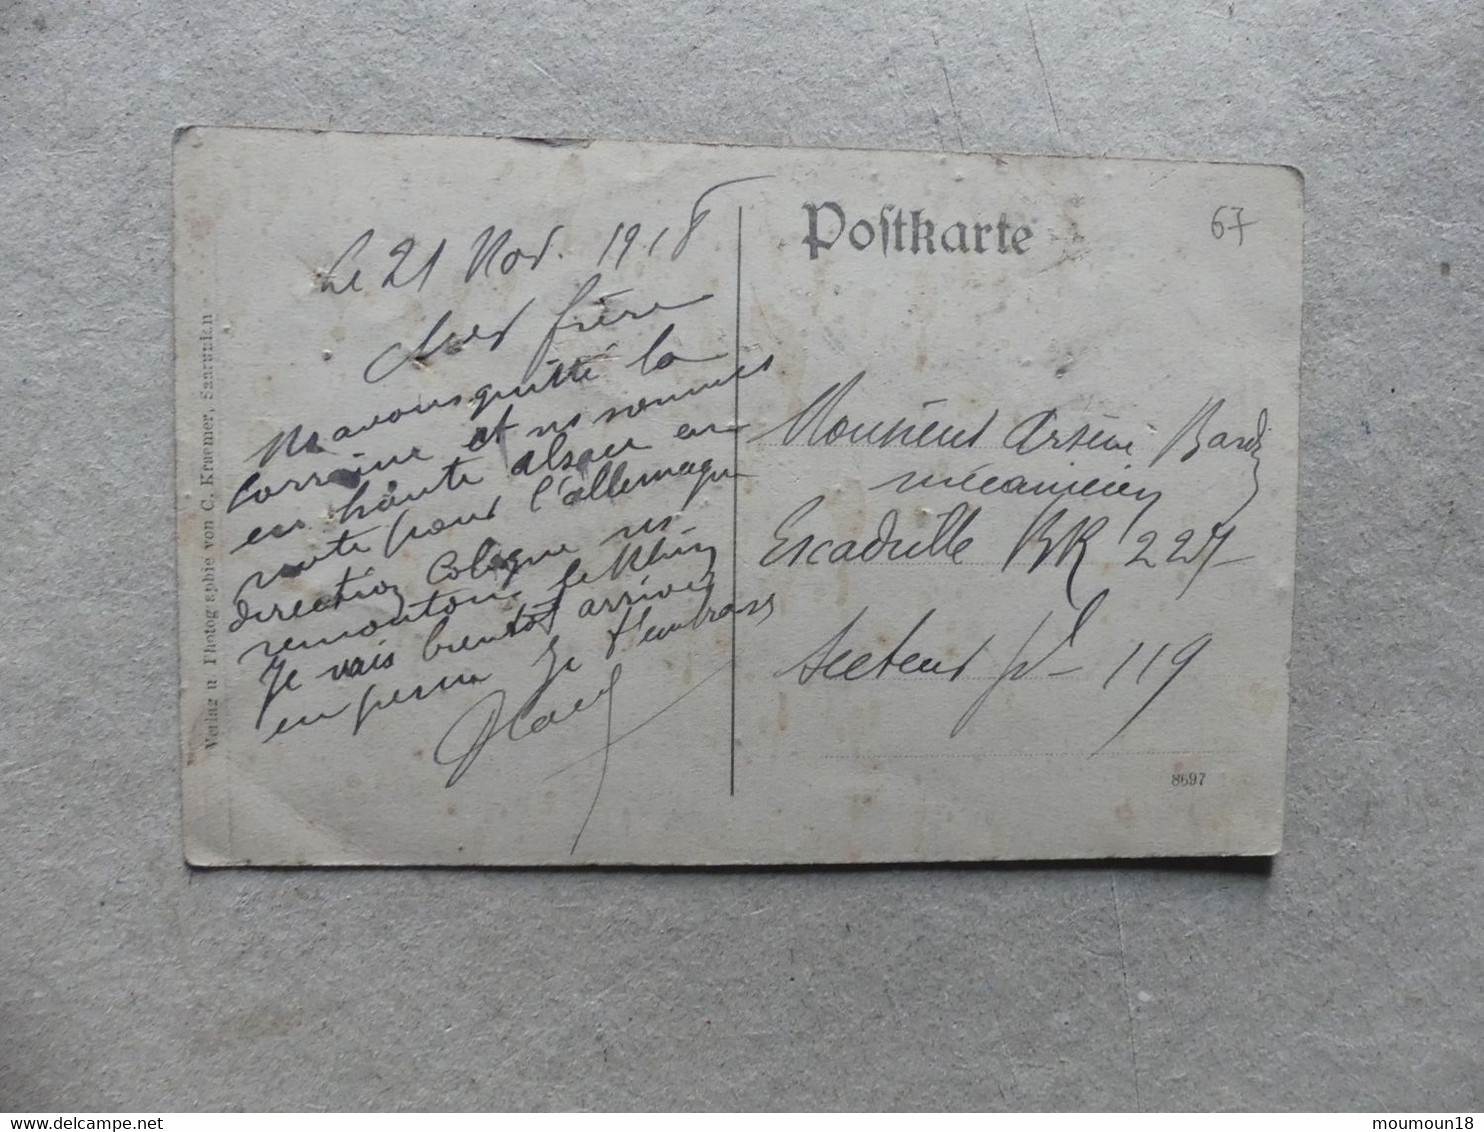 Postkarte
67
Le 21 Nov. 1918
Cher frère
Ns avons quitté la
Lorraine et ns sommes
en haute alsace en
route pour l'allemagne
direction Cologne ns
remontons le Rhin
Je vais bientôt arriver
en perm Je t'embrasse
Monsieur Arsène
mécanicien
Escadrille BR 227
Secteur pal 119
8697
Verlag u Photographie von C. Kraemer, Saarunion
moumoun18